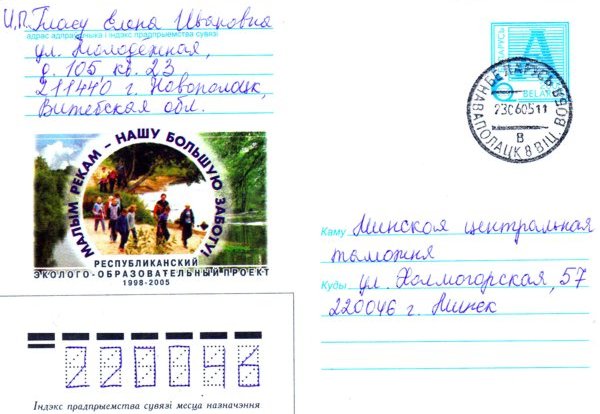 И.П. Гласу Елена Ивановна
адрас адпраўшчыка і індэкс прадпрыемства сувязі
ул. Молодёжная,
д. 105, кв. 23
211440 г. Новополоцк,
Витебская обл.
МАЛЫМ РЕКАМ - НАШУ БОЛЬШУЮ ЗАБОТУ!
РЕСПУБЛИКАНСКИЙ
ЭКОЛОГО-ОБРАЗОВАТЕЛЬНЫЙ ПРОЕКТ
1998-2005
БЕЛАРУСЬ
A
BELARUS
НАВАПОЛАЦК 8 ВІЦ.
230605 11
В
Каму Минская центральная
таможня
Куды ул. Холмогорская, 57
220046 г. Минск
220046
Індэкс прадпрыемства сувязі месца назначэння